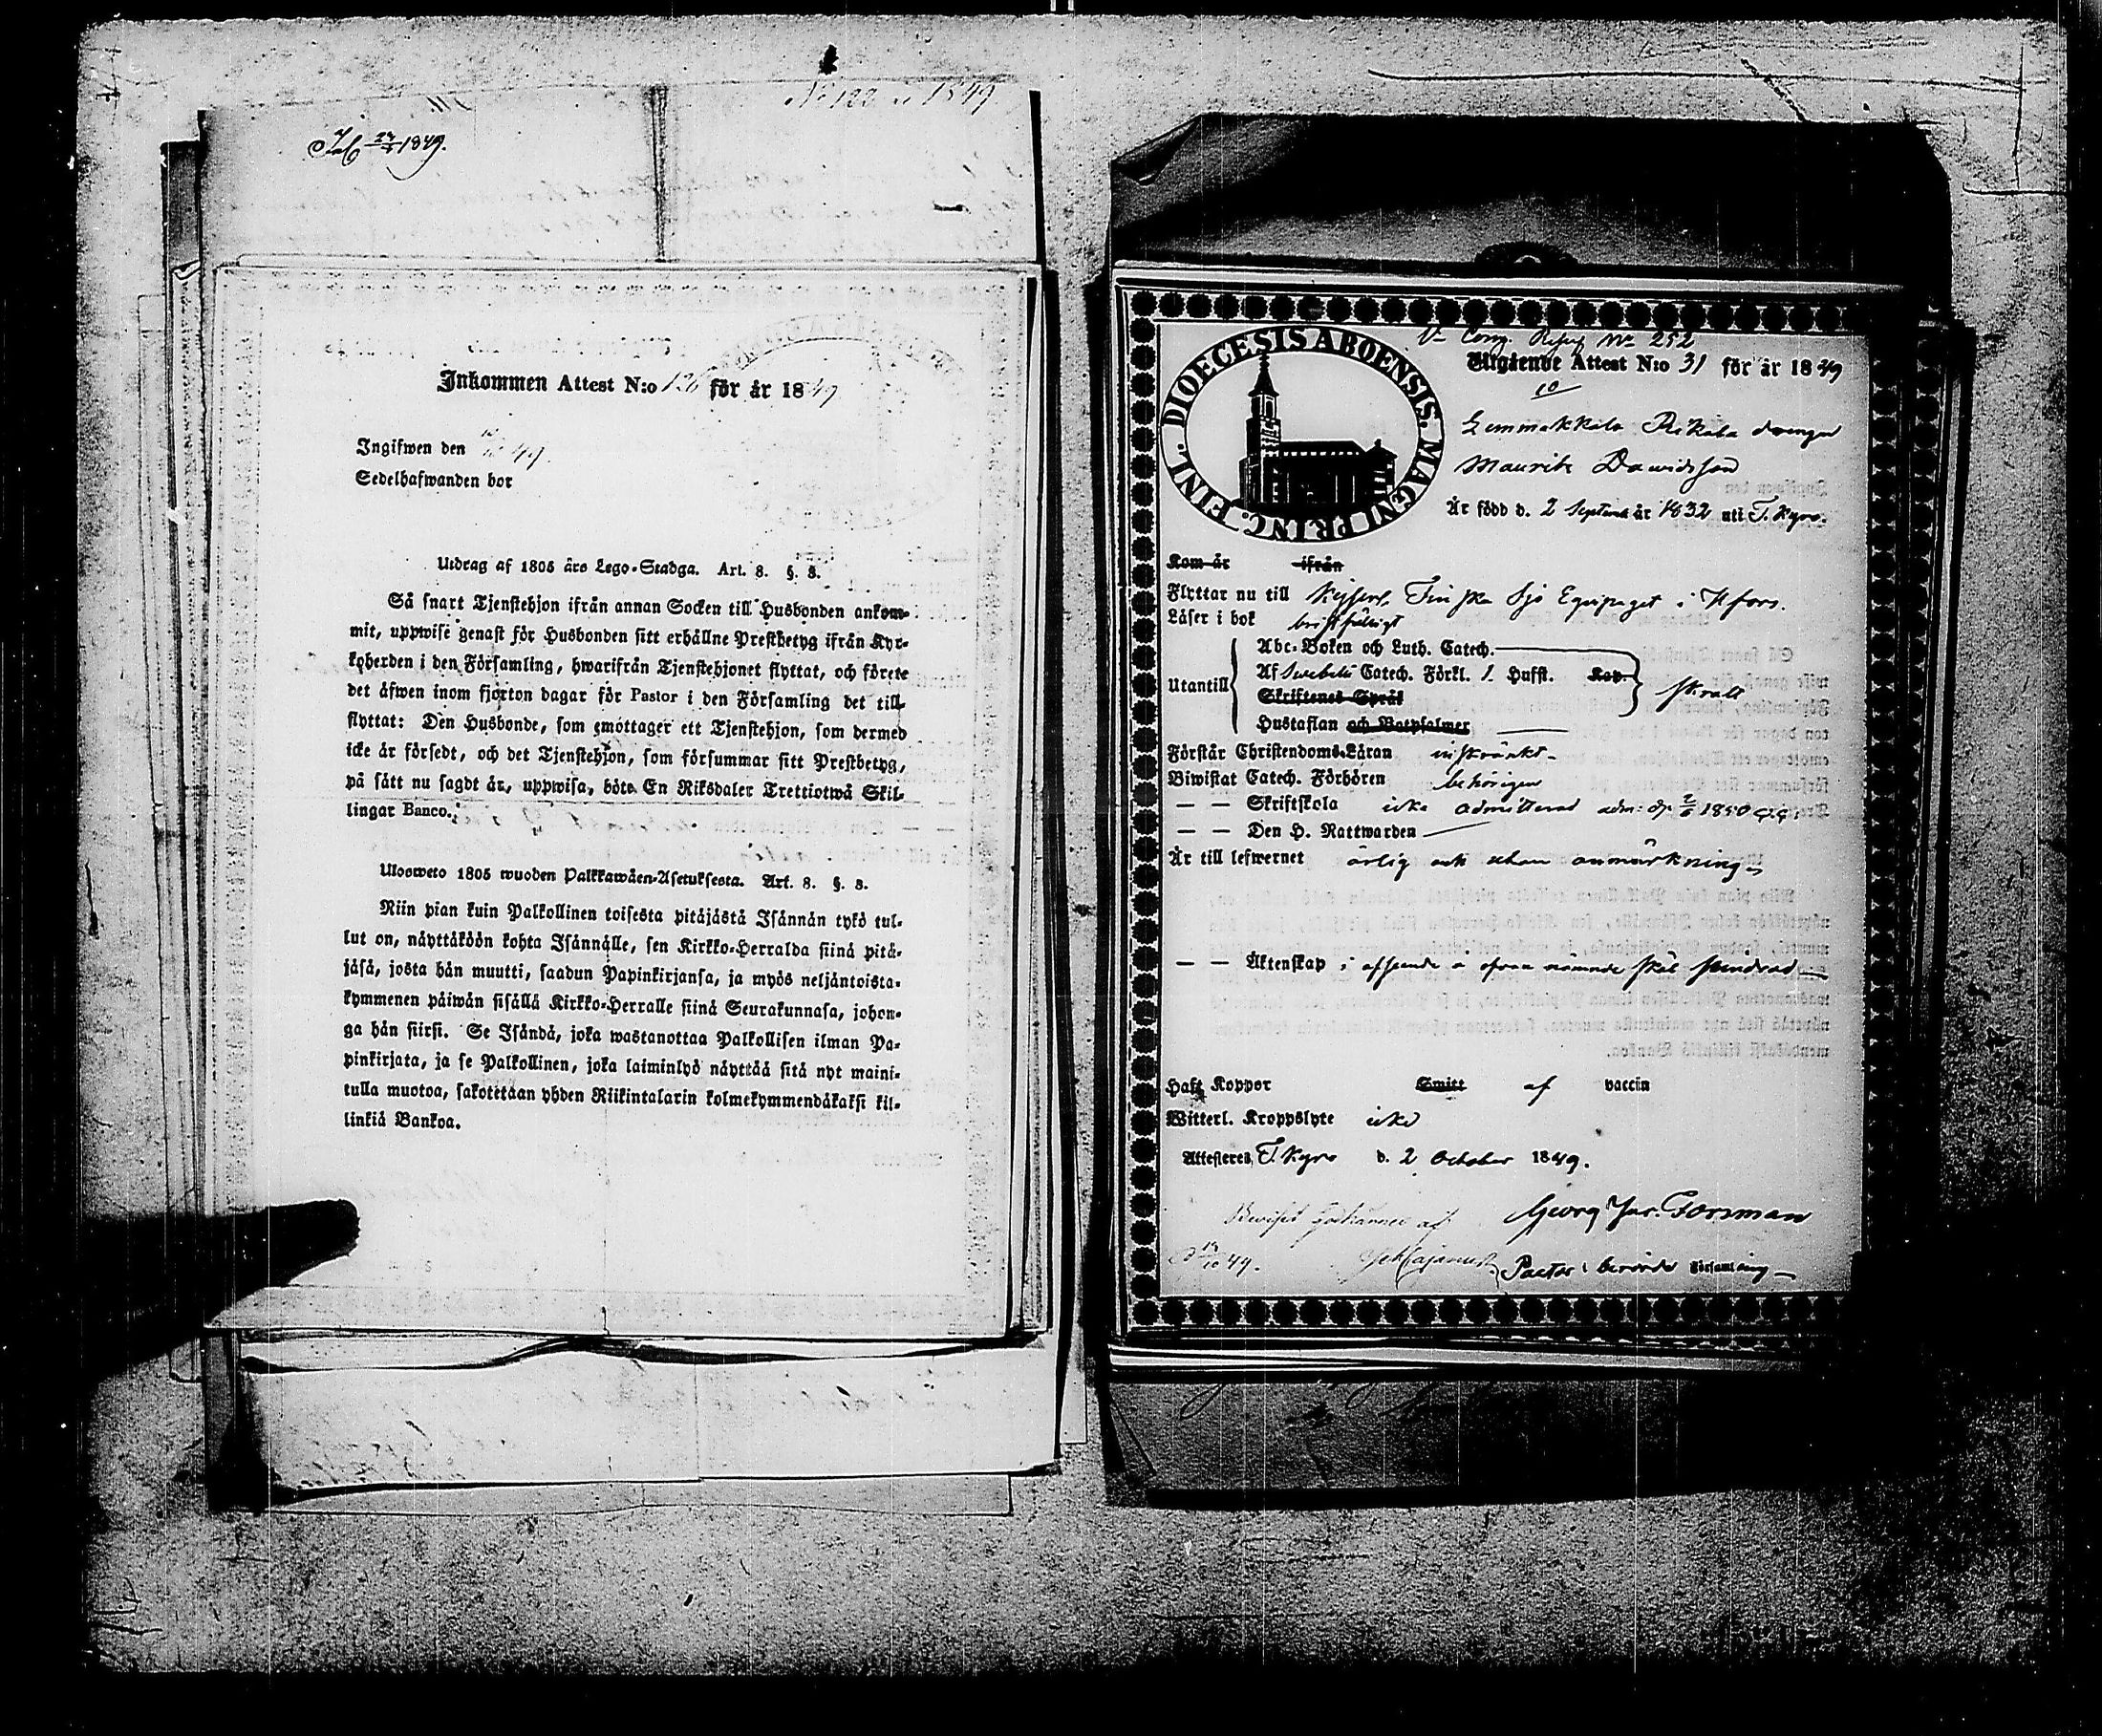 No 122 1849
1849.
Inkommen Attest N:o 126 för år 1849
Ingifwen den 49.
Sedelhafwanden bor
Utdrag af 1805 års Lego-Stadga. Art. 8. §. 3.
Så snart Tjenstehjon ifrån annan Socken till Husbonden ankom-
mit, uppwise genast för Husbonden sitt erhållne Prestbetyg ifrån Kyr-
koherden i den Församling, hwarifrån Tjenstehjonet flyttat, och förete
det äfwen inom fjorton dagar för Pastor i den Församling det till-
flyttat: Den Husbonde, som emottager ett Tjenstehjon, som dermed
icke är försedt, och det Tjenstehjon, som försummar sitt Prestbetyg,
på sätt nu sagdt är, uppwisa, böte En Riksdaler Trettiotwå Skil-
lingar Banco.
Uloswето 1805 wuoden Palkkawäen-Asetuksesta. Art. 8. §. 3.
Niin pian kuin Palkollinen toisesta pitäjästä Isännän tykö tul-
lut on, näyttäköön kohta Isännälle, sen Kirkko-Herralda siinä pitä-
jäsä, josta hän muutti, saadun Papinkirjansa, ja myös neljäntoista-
kymmenen päiwän sisällä Kirkko-Herralle siinä Seurakunnasa, johon-
ga hän siirsi. Se Isändä, joka wastanottaa Palkollisen ilman Pa-
pinkirjata, ja se Palkollinen, joka laiminlyö näyttää sitä nyt maini-
tulla muotoa, sakotetaan yhden Riikintalarin kolmekymmendäkaksi kil-
linkiä Bankoa.
DIOECESIS ABOENSIS. MAGNI PRINC. FINL.
No 252
Utgående Attest N:o 31 för år 1849
10
Lemmakkala Pikala drengen
Maurits Davidsson
Är född d. 2 September år 1832 uti T. Kyro.
Kom år ifrån
Flyttar nu till Kejserl. Finska Sjö Equipaget i Hfors.
Läser i bok bristfälligt
Utantill
Abc-Boken och Luth. Catech.
Af Svebelii Catech. Förkl. 1. Hufst. Kap.
Skriftenes Språk
Hustaflan och Botpsalmer
svalt
Förstår Christendoms-Läran inskränkt
Biwistat Catech. Förhören behörigen
— — Skriftskola icke admitterad adm: d. 2/6 1850
— — Den H. Nattwarden
Är till lefwernet ärlig och utan anmärkning
— — Äktenskap i afseende å ofvan nämnde skäl hindrad
Haft Koppor Smitt af vaccin
Witterl. Kroppslyte icke
Attesteres, T. Kyro d. 2 October 1849.
Georg Jac. Forsman
Beviset godkännes af
d. 13/10 49. Cajanus
Pastor i berörde Församling